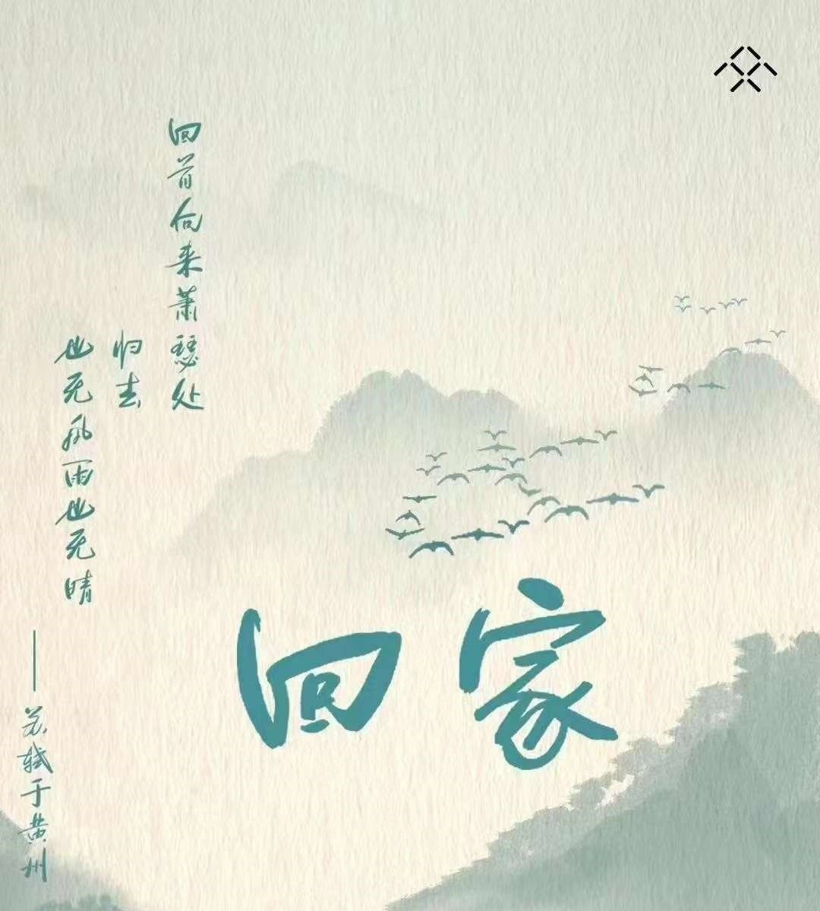 回首向来萧瑟处
归去
也无风雨也无晴
——苏轼于黄州
回家